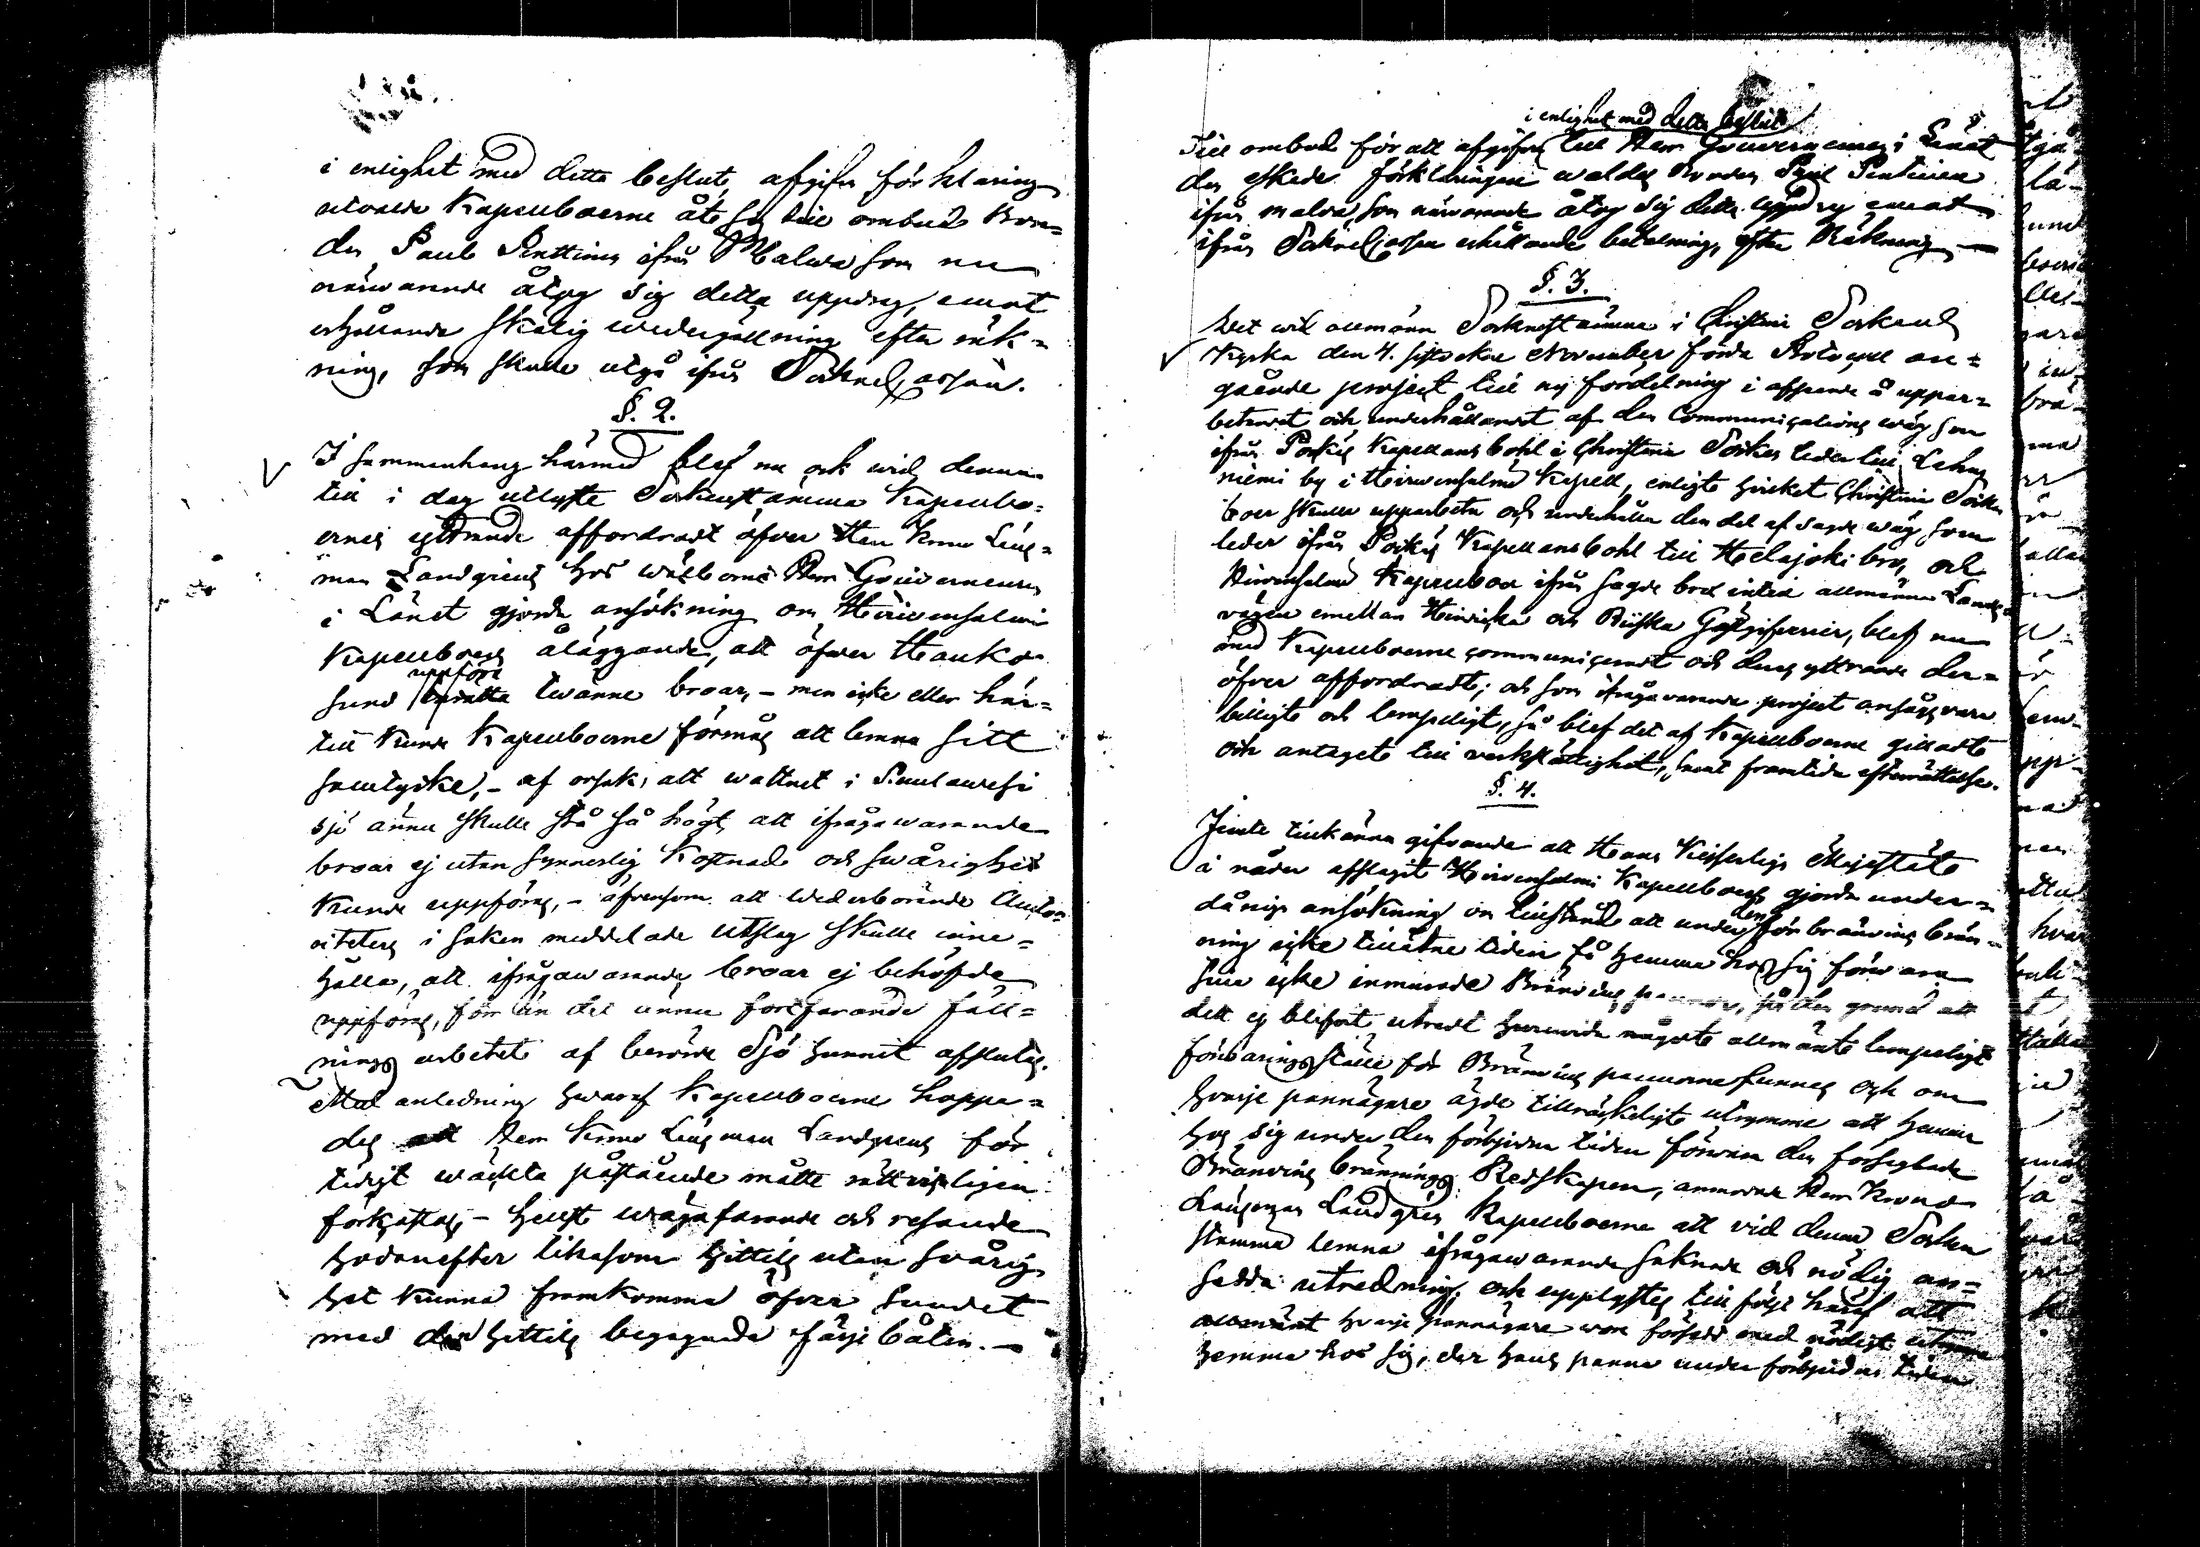 i enlighet med detta beslut, afgifva förklaring
utvalde Kapellboerne åt sig till ombud Bon=
den Paul Penttinen ifrån Malwa som nu
närwarande åtog sig detta uppdrag, emot
erhållande skälig wedergällning efter räk=
ning, som skulle utgå ifrån Sockne Cassan.
§. 2.
I sammenhang härmed blef nu ock wid denna
till i dag utlyste Sockenstämma Kapellbo=
ernes yttrande affordradt öfver Herr Krono Läns=
man Landgrens hos wälborne Herr Gouverneuren
i Länet gjorda ansökning om Hirvensalmi
Kapellboers åläggande, att öfver Hanka
uppföra
sund twänne broar, – men icke eller här=
till kunde Kapellboerne förmås att lemna sitt
samtycke, – af orsak, att wattnet i
sjö ännu skulle stå så högt, att ifrågawarande
broar ej utan synnerlig kostnad och swårighet
kunde uppföras, – äfvensom att wederbörande Aucto=
riteters i saken meddelade utslag skulle inne=
hålla, att ifrågawarande broar ej behöfde
uppföras, förr än det ännu fortfarande fäll=
nings arbetet af berörde Sjö hunnit afslutas.
Med anledning hwaraf Kapellboerne hoppa=
des att Herr Krono Länsman Landgrens för
tidigt wäckta påstående måtte rättvisligen
förkastas, – helst wägafarande och resande
hädanefter likasom hittils utan swårig
het kunna framkomma öfver sundet
med den hittils begagnade färje båten. –
i enlighet med detta beslut
Till ombud för att afgifva till Herr Gouverneuren i Länet
den skede förklaringen waldes Bonden Paul Penttinen
ifrån Malwa, som närwarande åtog sig detta uppdrag emot
ifrån Sockne Cassan erhållande betalning, efter Räkning –
§. 3.
Det wid allmänn Sockenstämma i Christina Sockens
Kyrka den 4. sistledne November förda Protocoll an=
gående project till ny fördelning i afseende å uppar=
betandet och underhållandet af den Communications wäg som
ifrån Kapellansbohl i Christina Socken leder till
niemi by i Hirwensalmi Kapell, enligt hvilket Christina Socken
boer skulle upparbeta och underhålla den del af sagde wäg som
leder ifrån Kapellansbohl till Helajoki bro, och
Hirvensalmi Kapellboer ifrån sagde bro intill allmänna Lands
vägen emellan och Gästgifverier, blef nu
med Kapellboerne communicerad och deras yttrande der=
öfver affordradt; och som ifrågavarande project ansågs vara
billigt och lempeligt, så blef det af Kapellboerne gilladt
och antaget till verkställighet, samt framtida efterrättelse.
§. 4.
Jemte tillkänna gifvande att Hans Kejserliga Majestäte
i nåder afslagit Hirvensalmi Kapellboers gjorde under=
dåniga ansökning om tillstånd att under den för bränvins brän=
ning icke tillåtne tiden få hemma hos sig förvara
sine icke inmurade Bränvins pannor, på den grund att
dett ej blifvit utredt huruvida någote allmänt lempeligt
förvaringsställe för Bränvins pannorne funnes och om
hvarje pannägare ägde tillräckeligt utrymme att hemma
hos sig under den förbjudna tiden förvara den förseglade
Bränvins brännings Redskapen, anmodade Herr Krono
Länsman Landgren Kapellboerne att vid denna Socken
stämma lemna ifrågawarande saknade och nödig an=
sedda utredning, och upplystes till följe häraf att
hvarje pannägare wore försedd med nödigt utrymme
hemma hos sig, der hans panna under förbjudna tiden